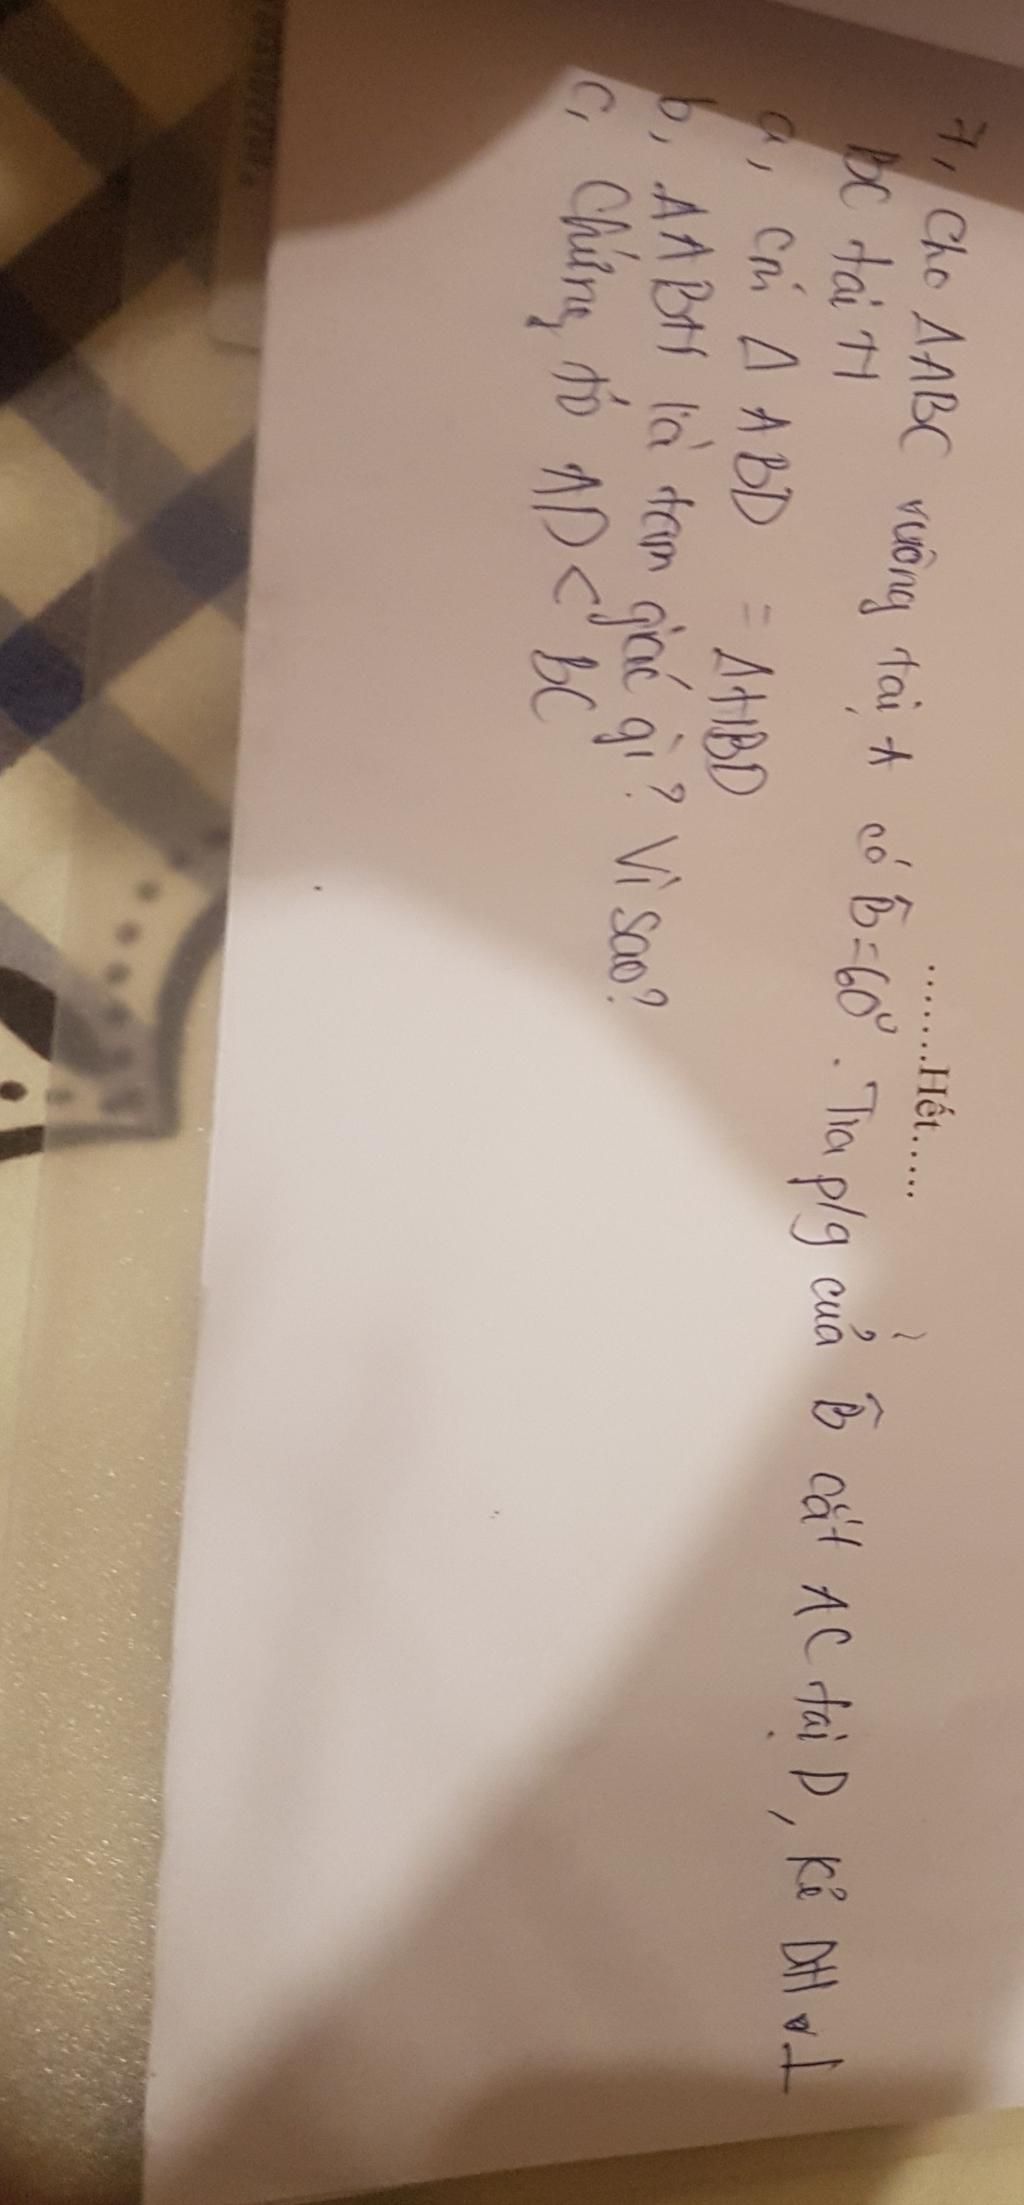 ........Hết......
7, Cho ΔABC vuông tại A có B̂=60⁰. Tia p/g của B̂ cắt AC tại D, kẻ DH ⊥
BC tại H
a, cm Δ ABD = ΔHBD
b, ΔABH là tam giác gì? Vì sao?
c, Chứng tỏ AD < BC